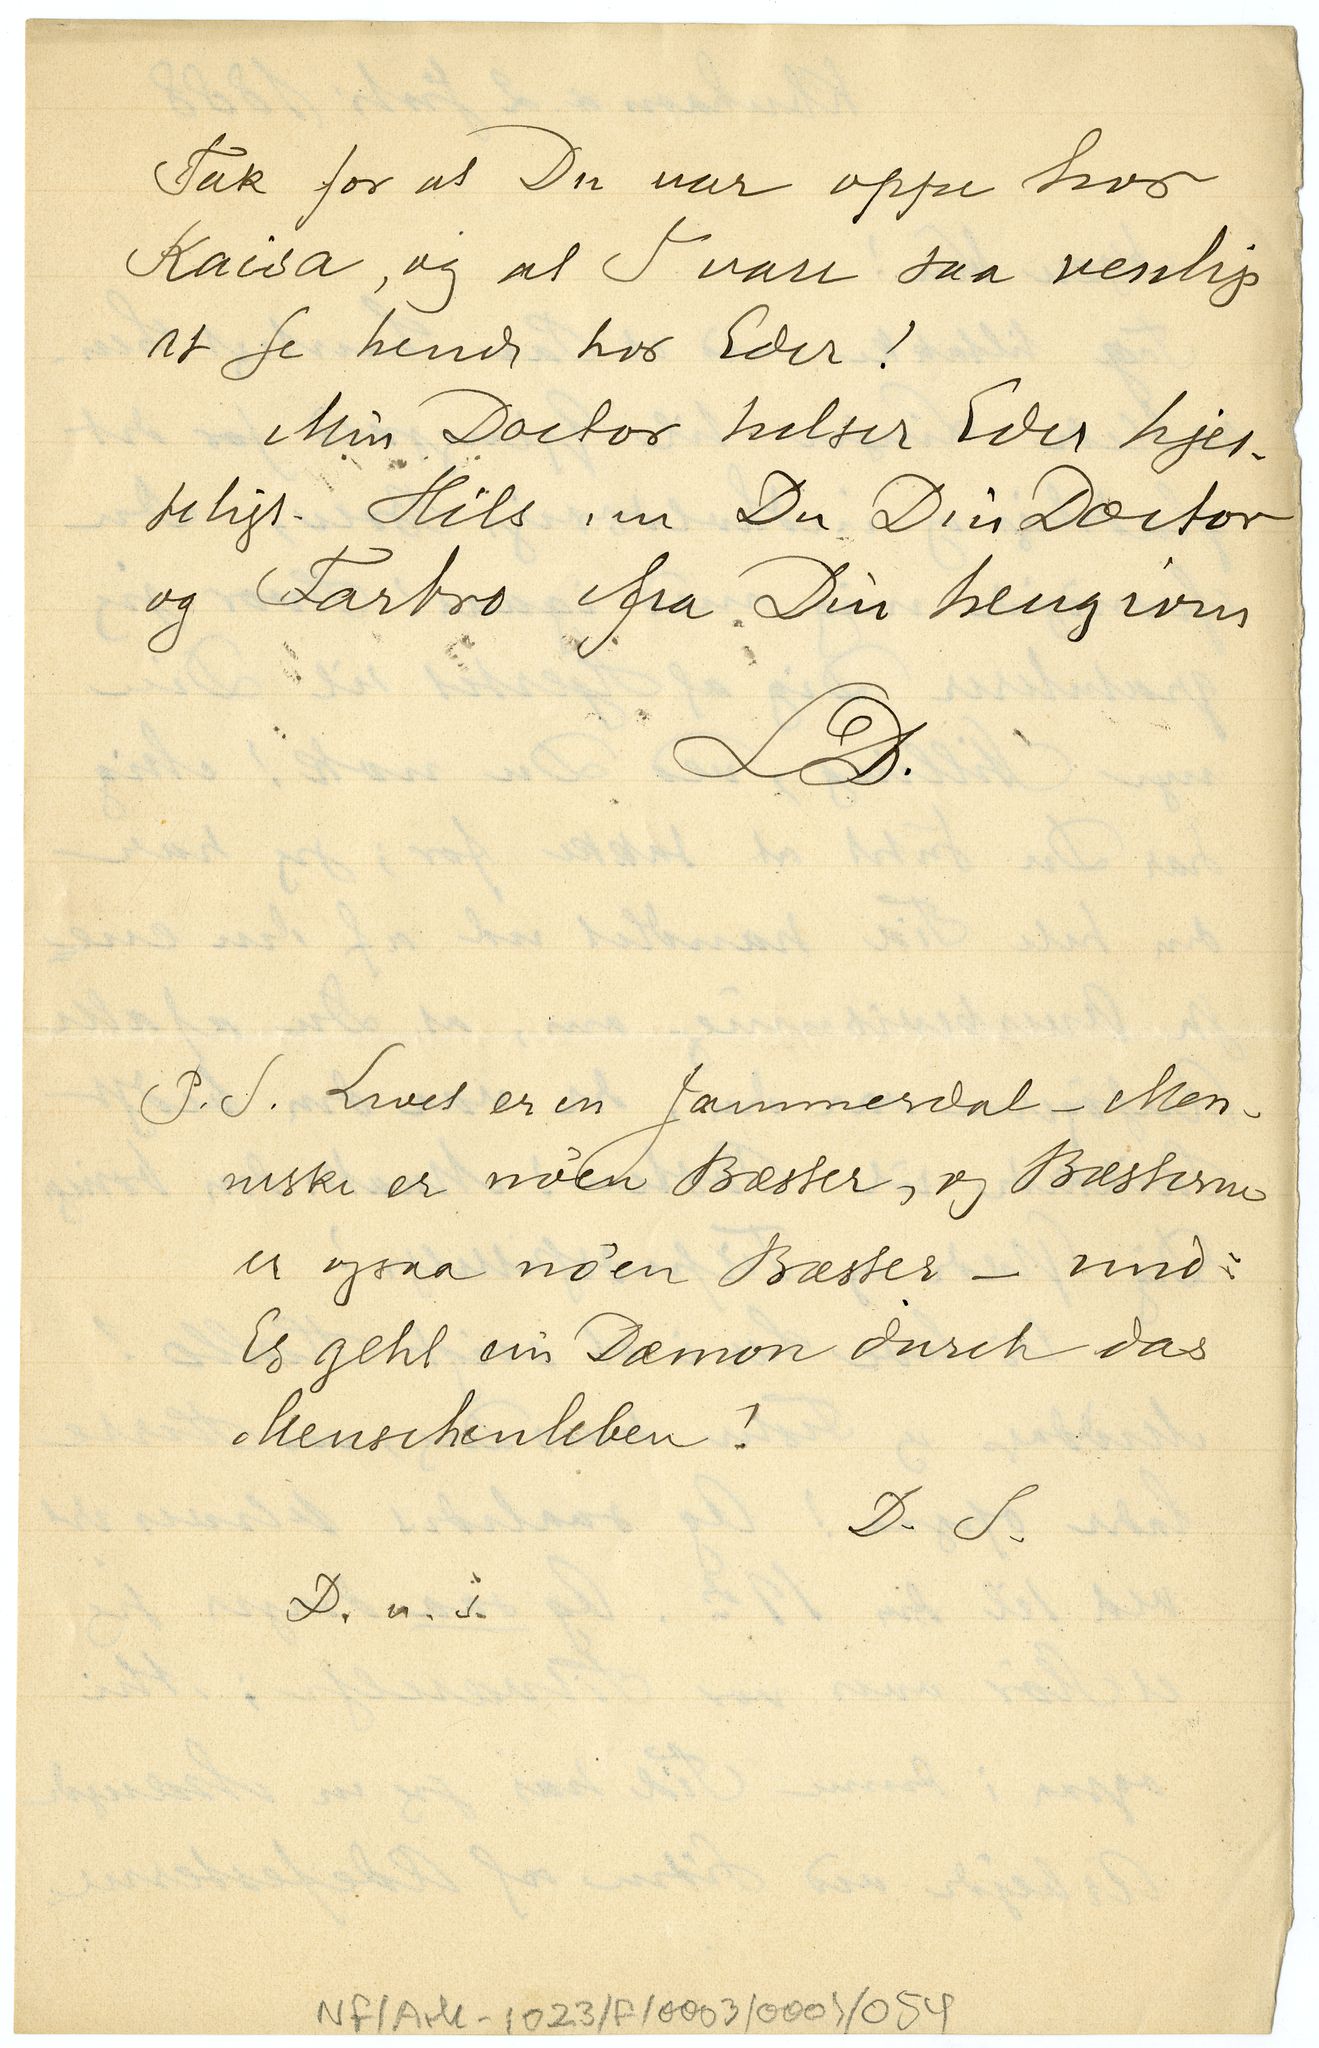 Tak for at Du var oppe hos
Kaisa, og at I vare saa venlig
at se hende hos Eder!
Min Doctor helser Eder hjer-
teligt. Hils nu Du Din Doctor
og Farbro fra Din hengivne
LD.
P.S. Livet er en Jammerdal - Men-
neske er nöen Bæster, og Bæsterne
er ogsaa nöen Bæster - und:
Es geht ein Dæmon durch das
Menschenleben!
D. S.
D. u. s.
NF/Ark-1023/F/0003/0003/054